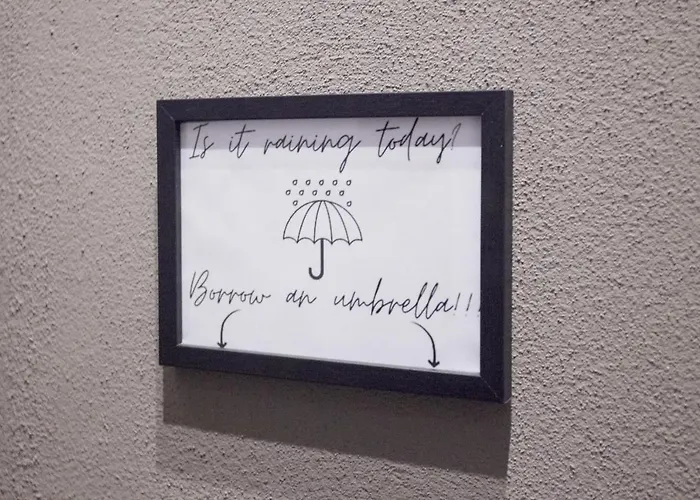 Is it raining today?
Borrow an umbrella!!!